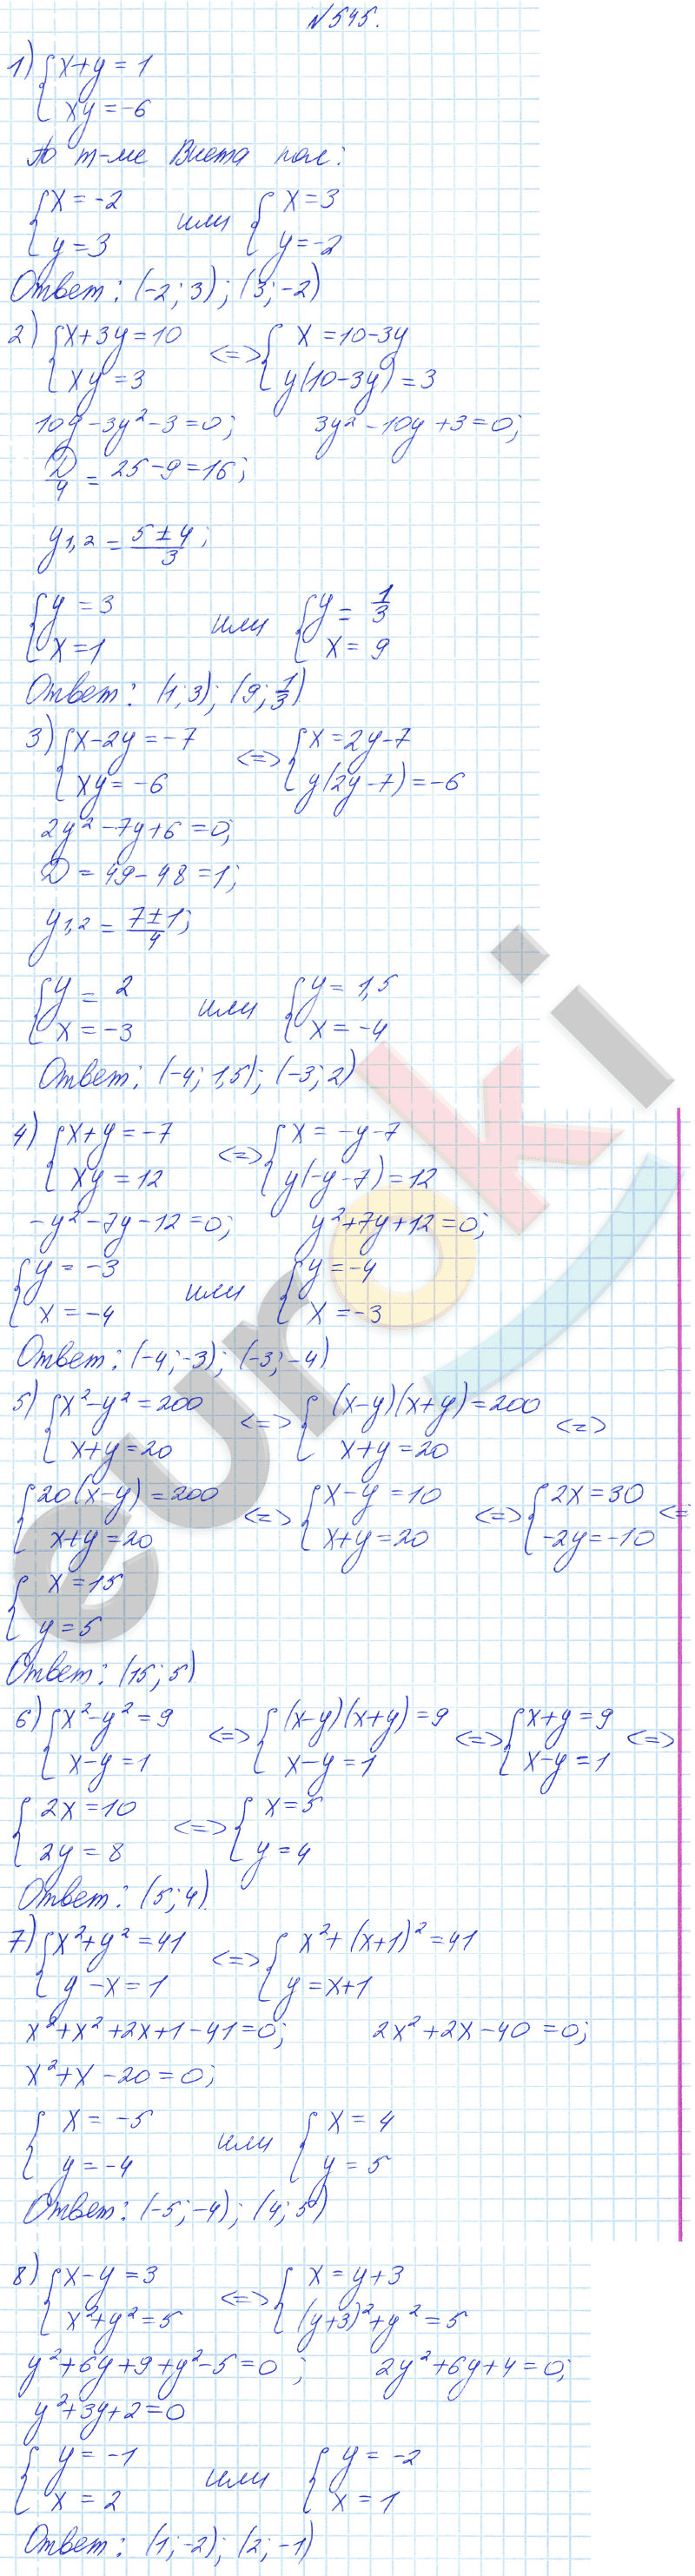 №545.
1) {x+y=1
xy=-6
По т-ме Виета пол:
{x=-2 или {x=3
y=3 y=-2
Ответ: (-2; 3); (3; -2)
2) {x+3y=10 <=> {x=10-3y
xy=3 y(10-3y)=3
10y-3y²-3=0; 3y²-10y+3=0;
D/4 = 25-9=16;
y1,2 = (5±4)/3;
{y=3 или {y=1/3
x=1 x=9
Ответ: (1; 3); (9; 1/3)
3) {x-2y=-7 <=> {x=2y-7
xy=-6 y(2y-7)=-6
2y²-7y+6=0;
D=49-48=1;
y1,2 = (7±1)/4;
{y=2 или {y=1,5
x=-3 x=-4
Ответ: (-4; 1,5); (-3; 2)
4) {x+y=-7 <=> {x=-y-7
xy=12 y(-y-7)=12
-y²-7y-12=0; y²+7y+12=0;
{y=-3 или {y=-4
x=-4 x=-3
Ответ: (-4; -3); (-3; -4)
5) {x²-y²=200 <=> {(x-y)(x+y)=200 <=>
x+y=20 x+y=20
{20(x-y)=200 <=> {x-y=10 <=> {2x=30 <=
x+y=20 x+y=20 -2y=-10
{x=15
y=5
Ответ: (15; 5)
6) {x²-y²=9 <=> {(x-y)(x+y)=9 <=> {x+y=9 <=>
x-y=1 x-y=1 x-y=1
{2x=10 <=> {x=5
2y=8 y=4
Ответ: (5; 4)
7) {x²+y²=41 <=> {x²+(x+1)²=41
y-x=1 y=x+1
x²+x²+2x+1-41=0; 2x²+2x-40=0;
x²+x-20=0;
{x=-5 или {x=4
y=-4 y=5
Ответ: (-5; -4); (4; 5)
8) {x-y=3 <=> {x=y+3
x²+y²=5 (y+3)²+y²=5
y²+6y+9+y²-5=0; 2y²+6y+4=0;
y²+3y+2=0
{y=-1 или {y=-2
x=2 x=1
Ответ: (1; -2); (2; -1)
euroki